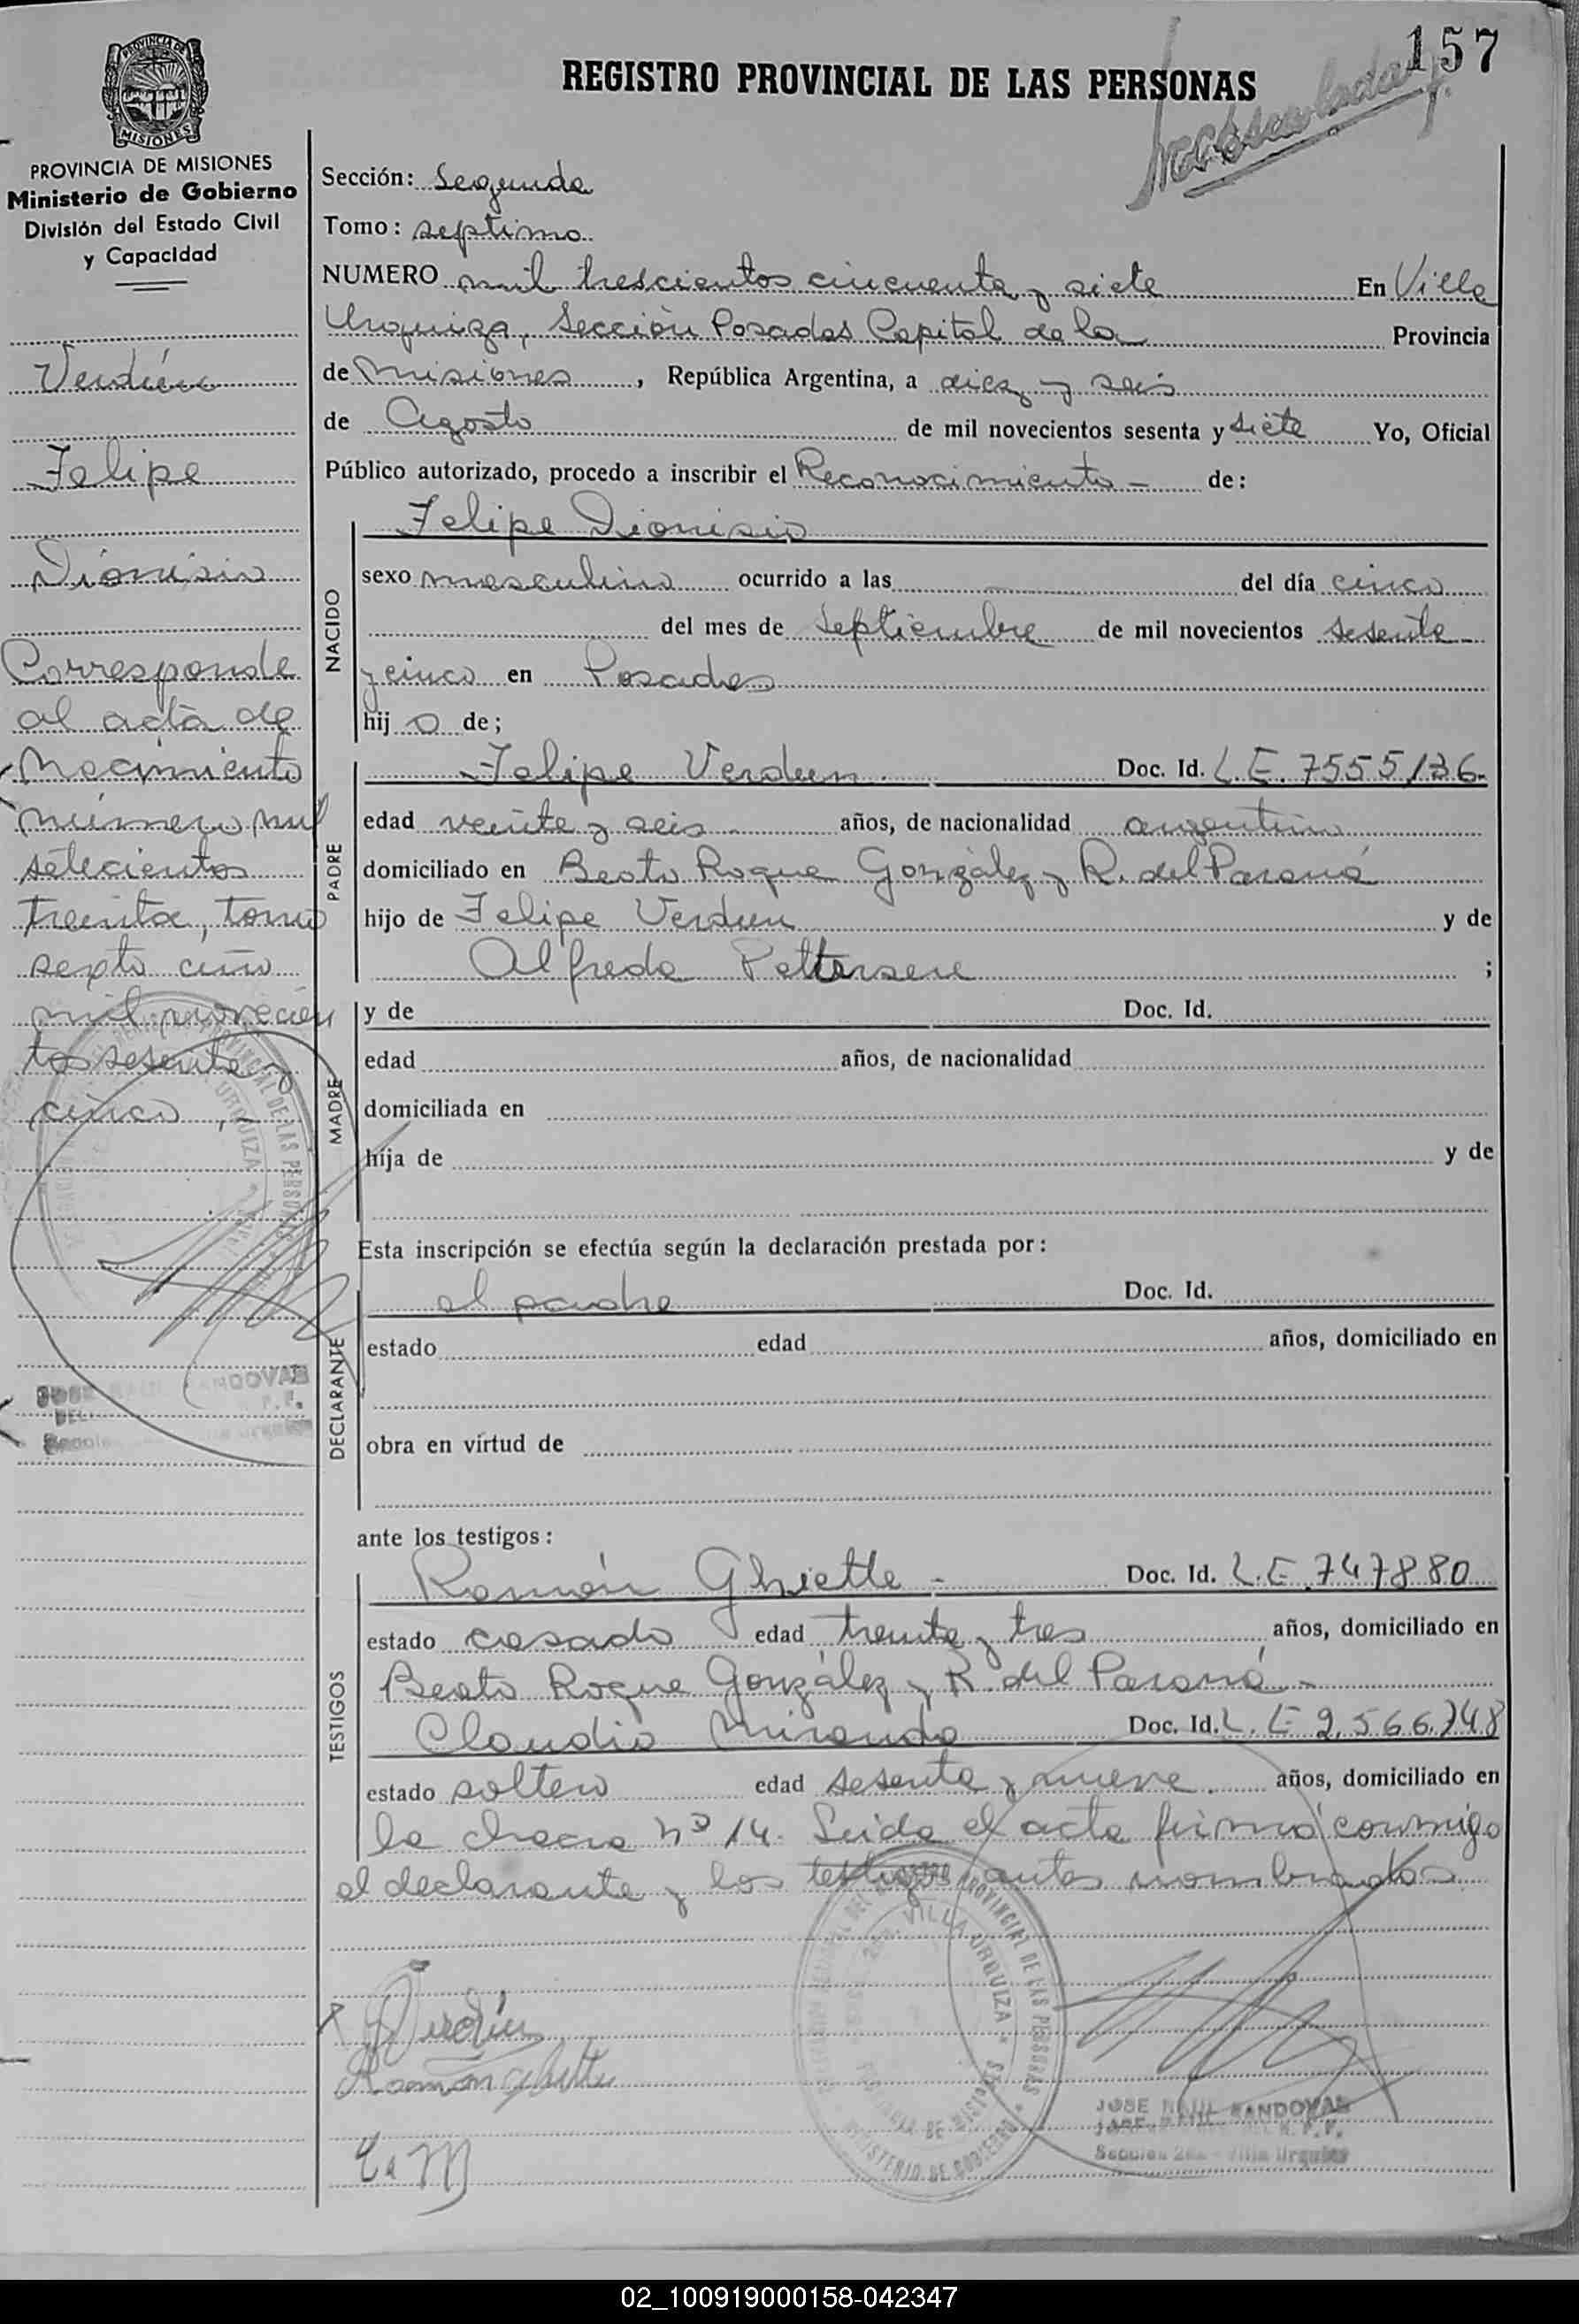 157
REGISTRO PROVINCIAL DE LAS PERSONAS
PROVINCIA DE
MISIONES
PROVINCIA DE MISIONES
Ministerio de Gobierno
División del Estado Civil
y Capacidad
Verdún
Felipe
Dionisio
Corresponde
al acta de
Nacimiento
número mil
setecientos
treinta, tomo
sexto año
mil novecien
tos sesenta y
cinco,-
Sección: Segunda
Tomo: septimo
NUMERO mil trescientos cincuenta y siete En Villa
Urquiza, Sección Posadas Capital de la Provincia
de Misiones, República Argentina, a diez y seis
de Agosto de mil novecientos sesenta y siete Yo, Oficial
Público autorizado, procedo a inscribir el Reconocimiento - de:
Felipe Dionisio
NACIDO
sexo masculino ocurrido a las del día cinco
del mes de Septiembre de mil novecientos sesenta
y cinco en Posadas
hij o de;
PADRE
Felipe Verdun Doc. Id. L.E. 7555136-
edad veinte y seis años, de nacionalidad argentino
domiciliado en Beato Roque González y R. del Paraná
hijo de Felipe Verdun y de
Alfreda Pettersen ;
MADRE
y de Doc. Id.
edad años, de nacionalidad
domiciliada en
hija de y de
Esta inscripción se efectúa según la declaración prestada por:
DECLARANTE
el padre Doc. Id.
estado edad años, domiciliado en
obra en virtud de
ante los testigos:
TESTIGOS
Ramón Ghiette - Doc. Id. L.E. 747880
estado casado edad treinta y tres años, domiciliado en
Beato Roque González y R. del Paraná -
Claudio Miranda Doc. Id. L. E 2.566.748
estado soltero edad sesenta y nueve años, domiciliado en
la chacra nº 14. Leida el acta firmó conmigo
el declarante y los testigos antes nombrados
Verdún
Ramón
VILLA URQUIZA
PROVINCIAL DE LAS PERSONAS
MINISTERIO DE GOBIERNO
JOSE RAUL SANDOVAL
Villa Urquiza
02_100919000158-042347